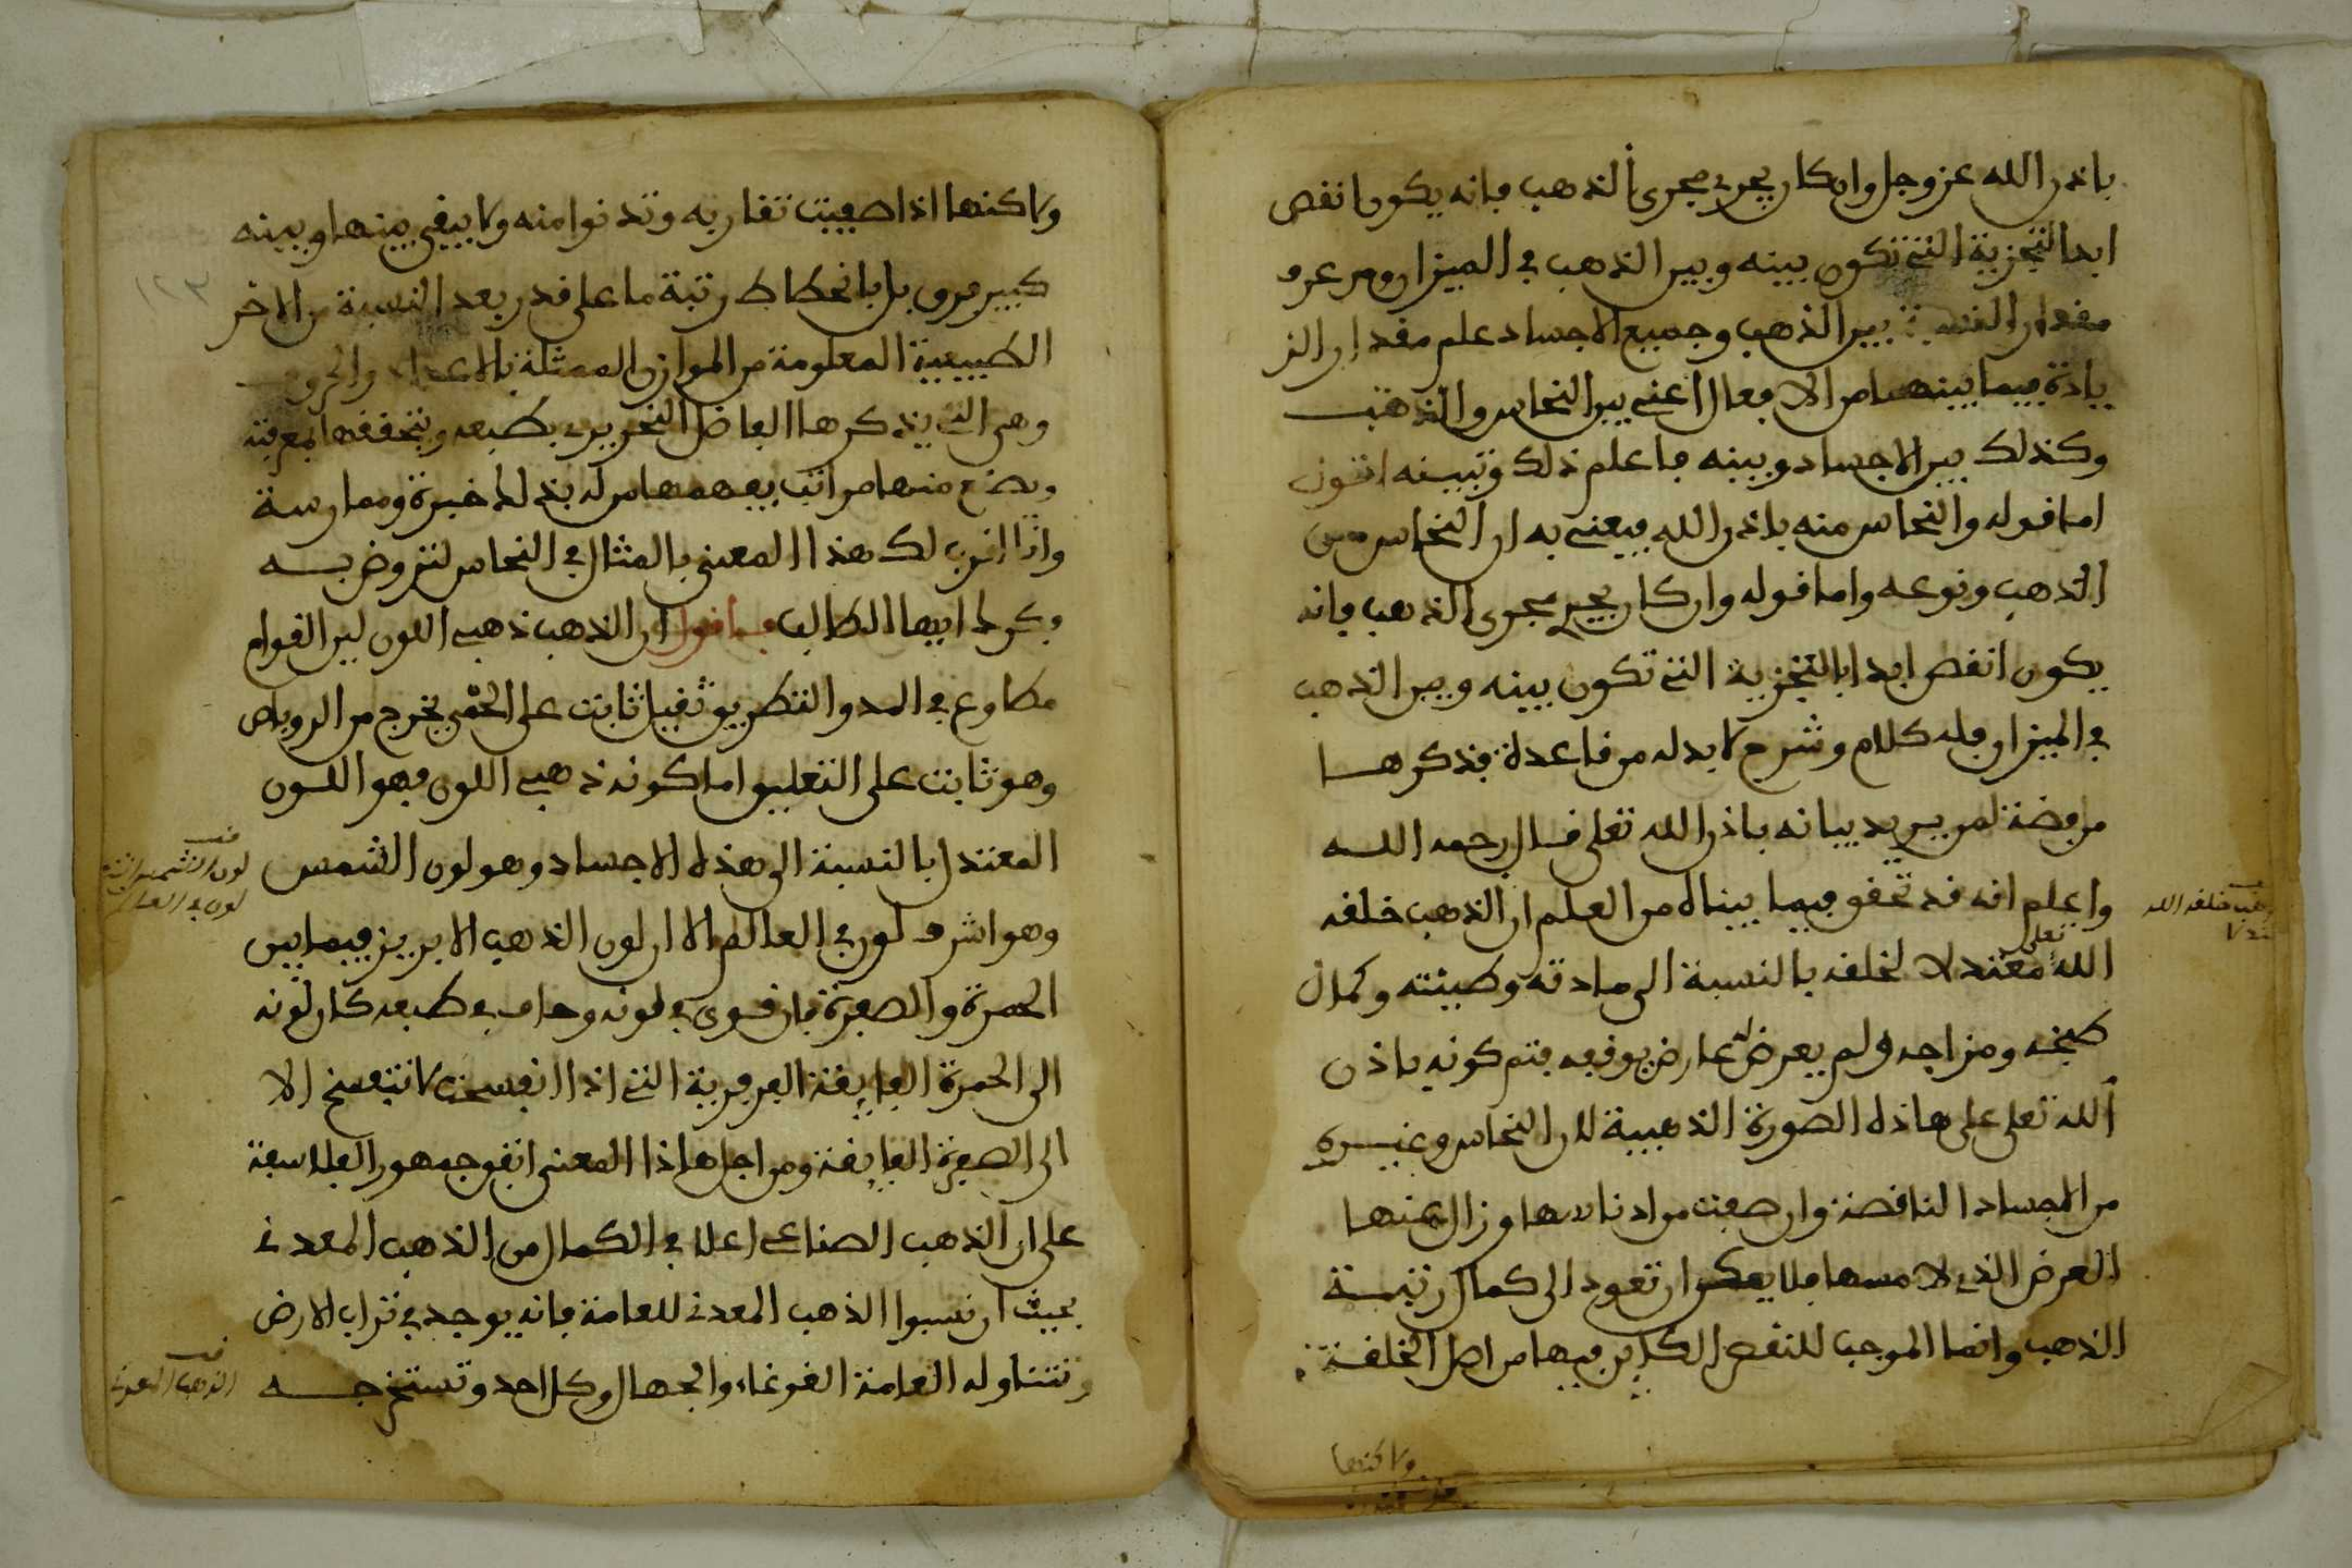 باذن الله عز وجل وان كان يجري مجرى الذهب فانه يكون انقص
ابدا التجزية التي تكون بينه وبين الذهب في الميزان ومن عرف
مقدار النسبة بين الذهب وجميع الاجساد علم مقدار الز
يادة فيما بينهما من الافعال اعني بين النحاس والذهب
وكذلك بين الاجساد وبينه فاعلم ذلك وتبينه
اما قوله والنحاس منه باذن الله فيعني به ان النحاس من
الذهب ونوعه واما قوله وان كان يجري مجرى الذهب فانه
يكون انقص ابدا بالتجزية التي تكون بينه وبين الذهب
في الميزان فله كلام وشرح لا بد له من قاعدة فنذكرها
لمن يريد بيانه باذن الله تعلى قال رحمه الله
واعلم انه قد تحقق فيما بيناه من العلم ان الذهب خلقه
الله تعلى معتدلا لخلقه بالنسبة الى مادته وطينته وكمال
طبخه ومزاجه ولم يعرض له عارض يوقفه فتم كونه باذن
الله تعلى على هاذه الصورة الذهبية لان النحاس وغيره
من الاجساد الناقصة وان صفت من ادناسها وزال عنها
العرض الذي لامسها فلا يمكن ان تعود الى كمال رتبة
الذهب وانما الموجب للنقص الكاين فيها من اصل الخلقة
ولاكنها
خلقه الله
ولاكنها اذا صفيت تقاربه وتدنوا منه ولا يبقى بينها وبينه
كبير فرق بل بانحطاط رتبة ما على قدر بعد النسبة من الاخر
الطبيعية المعلومة من الموازن الممثلة بالاعداد والحروف
وهي التي يذكرها الفاضل النحرير بطبعه ويتحققها بمعرفته
ويضع منها مراتب يفهمها من له بذلك خبرة وممارسة
وانا اقرب لك هذا المعنى بالمثال في النحاس لتتروض به
فكرك ايها الطالب فاقول ان الذهب ذهبي اللون لين القوام
مطاوع في المد والتطريق ثقيل ثابت على الحمي يخرج من الروباص
وهو ثابت على التعليق اما كونه ذهبي اللون فهو اللون
المعتدل بالنسبة الى هذه الاجساد وهو لون الشمس
وهو اشرف لون في العالم الا ان لون الذهب الابريز فيما بين
الحمرة والصفرة فان قوي في لونه وحاف في طبعه كان لونه
الى الحمرة الفايقة الفرفرية التي اذا انفسخت لا تتفسخ الا
الى الصفرة الفايقة ومن اجل هاذا المعنى اتفق جمهور الفلاسفة
على ان الذهب الصناعي اعلا في الكمال من الذهب المعدني
بحيث ان نسبوا الذهب المعدني للعامة فانه يوجد في تراب الارض
وتتناوله العامة الغوغاء والجهال وكل احد وتستخرجه
١٢٣
قف
لون الشمس
لون في العالم
قف
الذهب المعدني